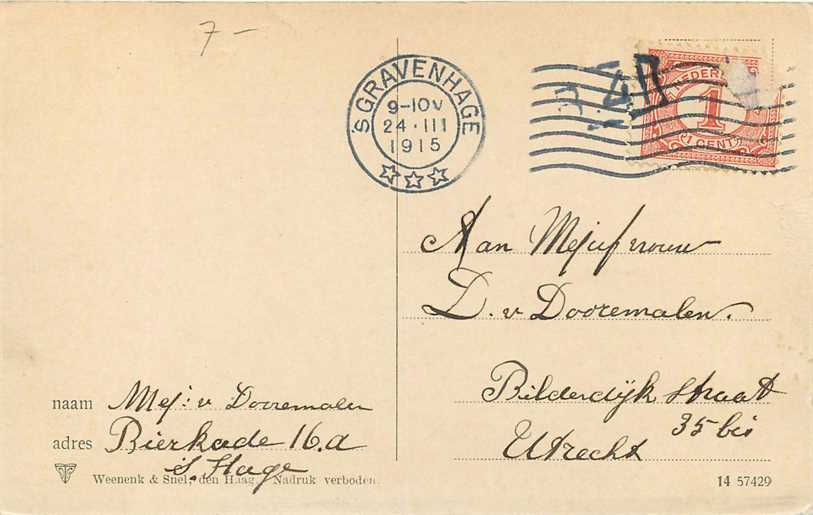 7-
'SGRAVENHAGE
9-10V
24·III
1915
4R
NEDERL
1
1 CENT
Aan Mejufvrouw
D. v Dooremalen.
Bilderdijk straat
35 bis
Utrecht
naam Mej: v Dooremalen
adres Bierkade 16.a
s. Hage
Weenenk & Snel, den Haag. Nadruk verboden.
14 57429